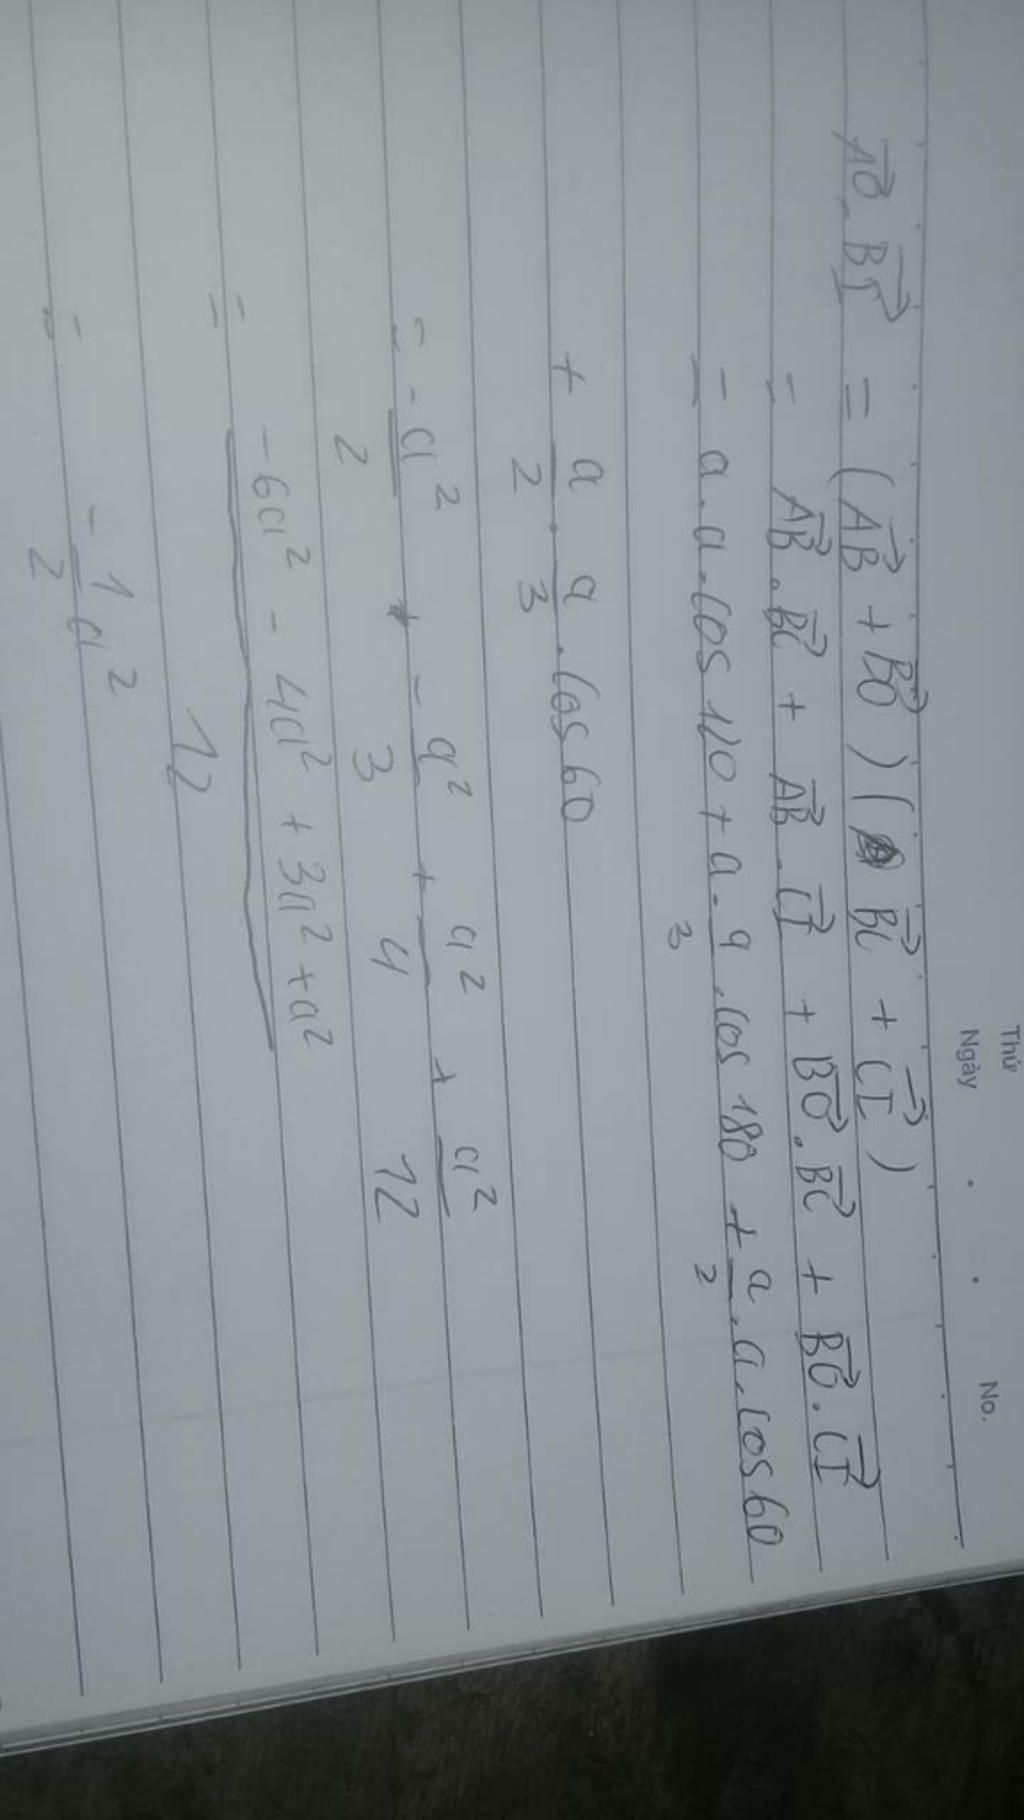 Thứ
Ngày . . No.
AO⃗.BI⃗ = (AB⃗ + BO⃗)(BC⃗ + CI⃗)
= AB⃗.BC⃗ + AB⃗.CI⃗ + BO⃗.BC⃗ + BO⃗.CI⃗
= a.a.cos 120 + a.a/3.cos 180 + a/2.a.cos 60
+ a/2 . a/3.cos 60
= -a²/2 - a²/3 + a²/4 + a²/12
= (-6a² - 4a² + 3a² + a²)/12
= -1/2 a²